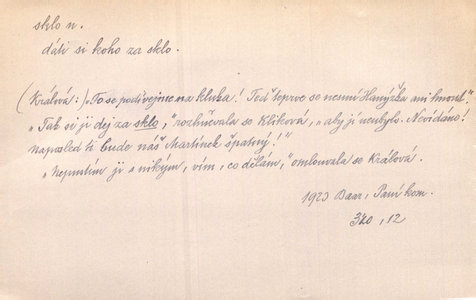 sklo n.
dáti si koho za sklo.
(Králová:) „To se podívejme na kluka! Teď teprve se nesmí Hanýžka ani hnout."
„Tak si ji dej za sklo," rozhněvala se Klíková, „aby jí neubylo. Nevídáno!
Naposled ti bude náš Martínek špatný!"
„Nepustím ji s nikým, vím, co dělám," omlouvala se Králová.
1923 Baar, Paní kom.
320, 12